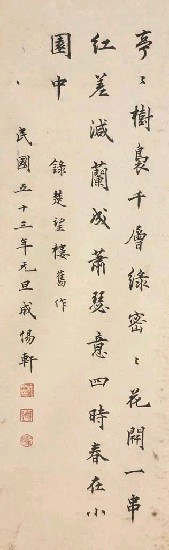 亭〻樹裊千層綠密〻花開一串
紅差減蘭成蕭瑟意四時春在小
園中
錄楚望樓舊作
民國五十三年元旦成惕軒